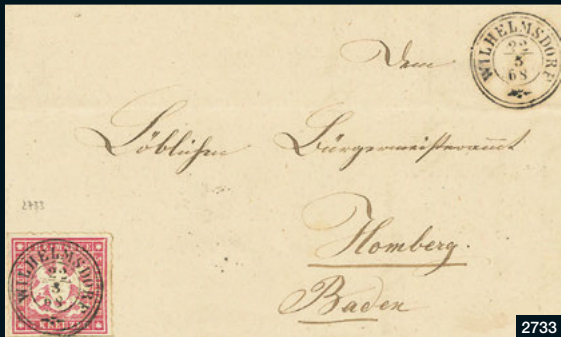 WILHELMSDORF
22
5
68
Dem
Löblichen Bürgermeisteramt
Homberg.
Baden
2733
WILHELMSDORF
22
5
68
2733